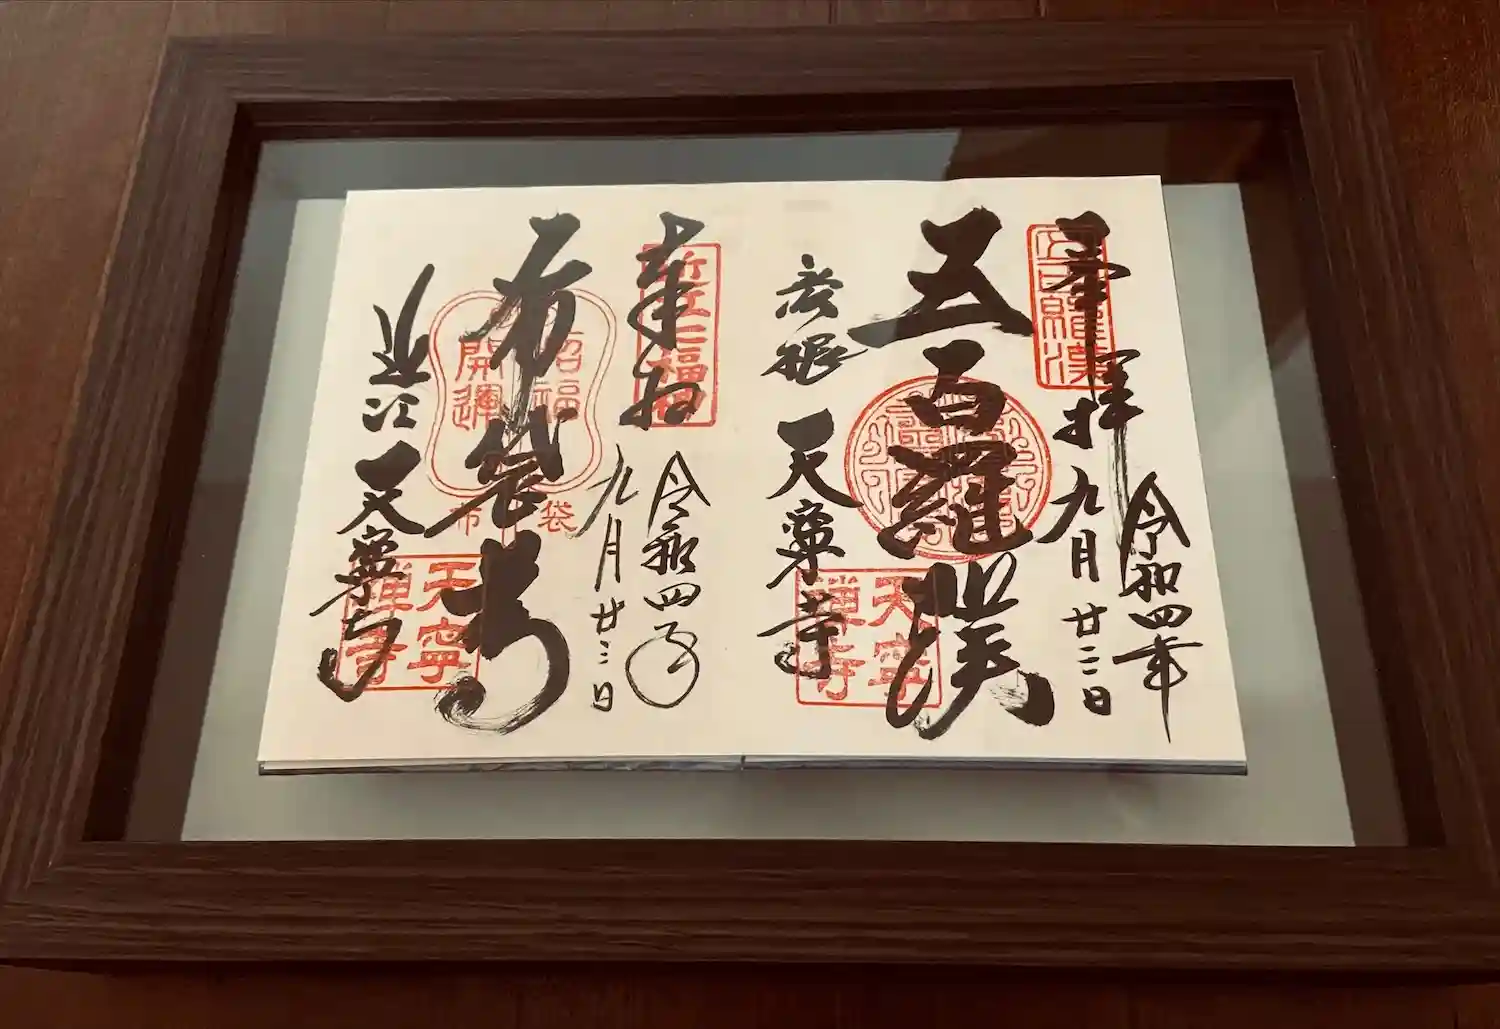 奉拝
令和四年
九月廿三日
五百羅漢
彦根
天寧寺
五百羅漢
天寧禅寺
奉拝
令和四年
九月廿三日
布袋尊
近江
天寧寺
近江七福神
招福
開運
布袋
天寧禅寺